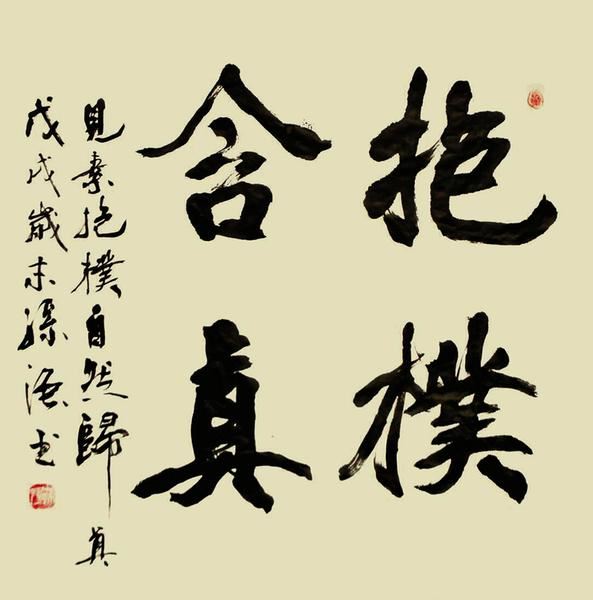 抱樸
含真
見素抱樸自然歸真
戊戌歲末孫漁书